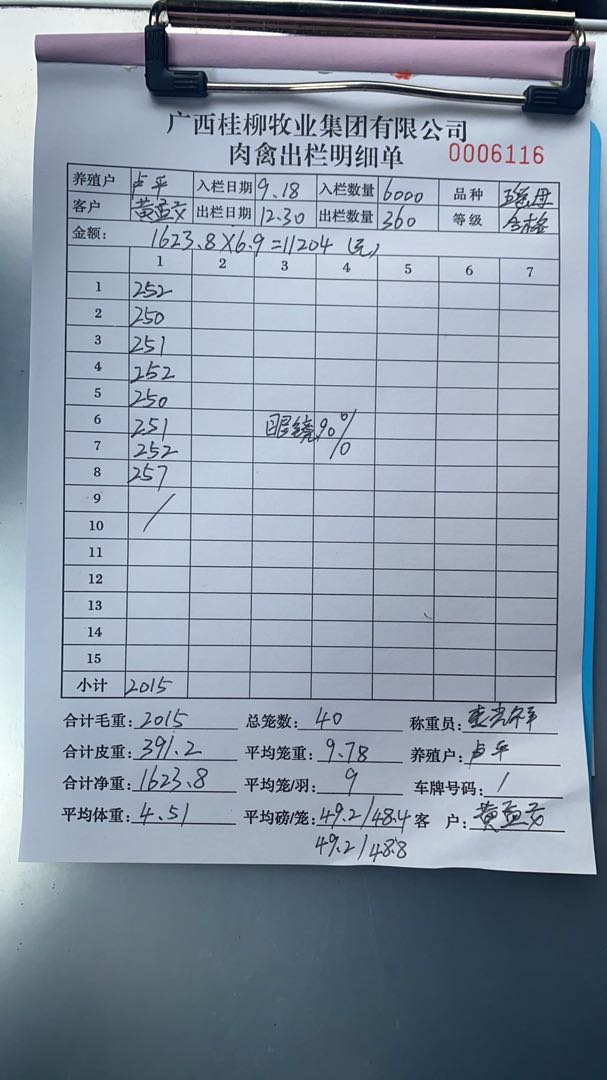 广西桂柳牧业集团有限公司
肉禽出栏明细单 0006116
养殖户 卢平 入栏日期 9.18 入栏数量 6000 品种
客户 黄孟 出栏日期 12.30 出栏数量 360 等级 合格
金额: 1623.8×6.9=11204(元)
1 2 3 4 5 6 7
1 252
2 250
3 251
4 252
5 250
6 251 眼镜90%
7 252
8 257
9
10 /
11
12
13
14
15
小计 2015
合计毛重: 2015 总笼数: 40 称重员:
合计皮重: 391.2 平均笼重: 9.78 养殖户: 卢平
合计净重: 1623.8 平均笼/羽: 9 车牌号码: /
平均体重: 4.51 平均磅/笼: 49.2/48.4 客 户: 黄孟
49.2/48.8